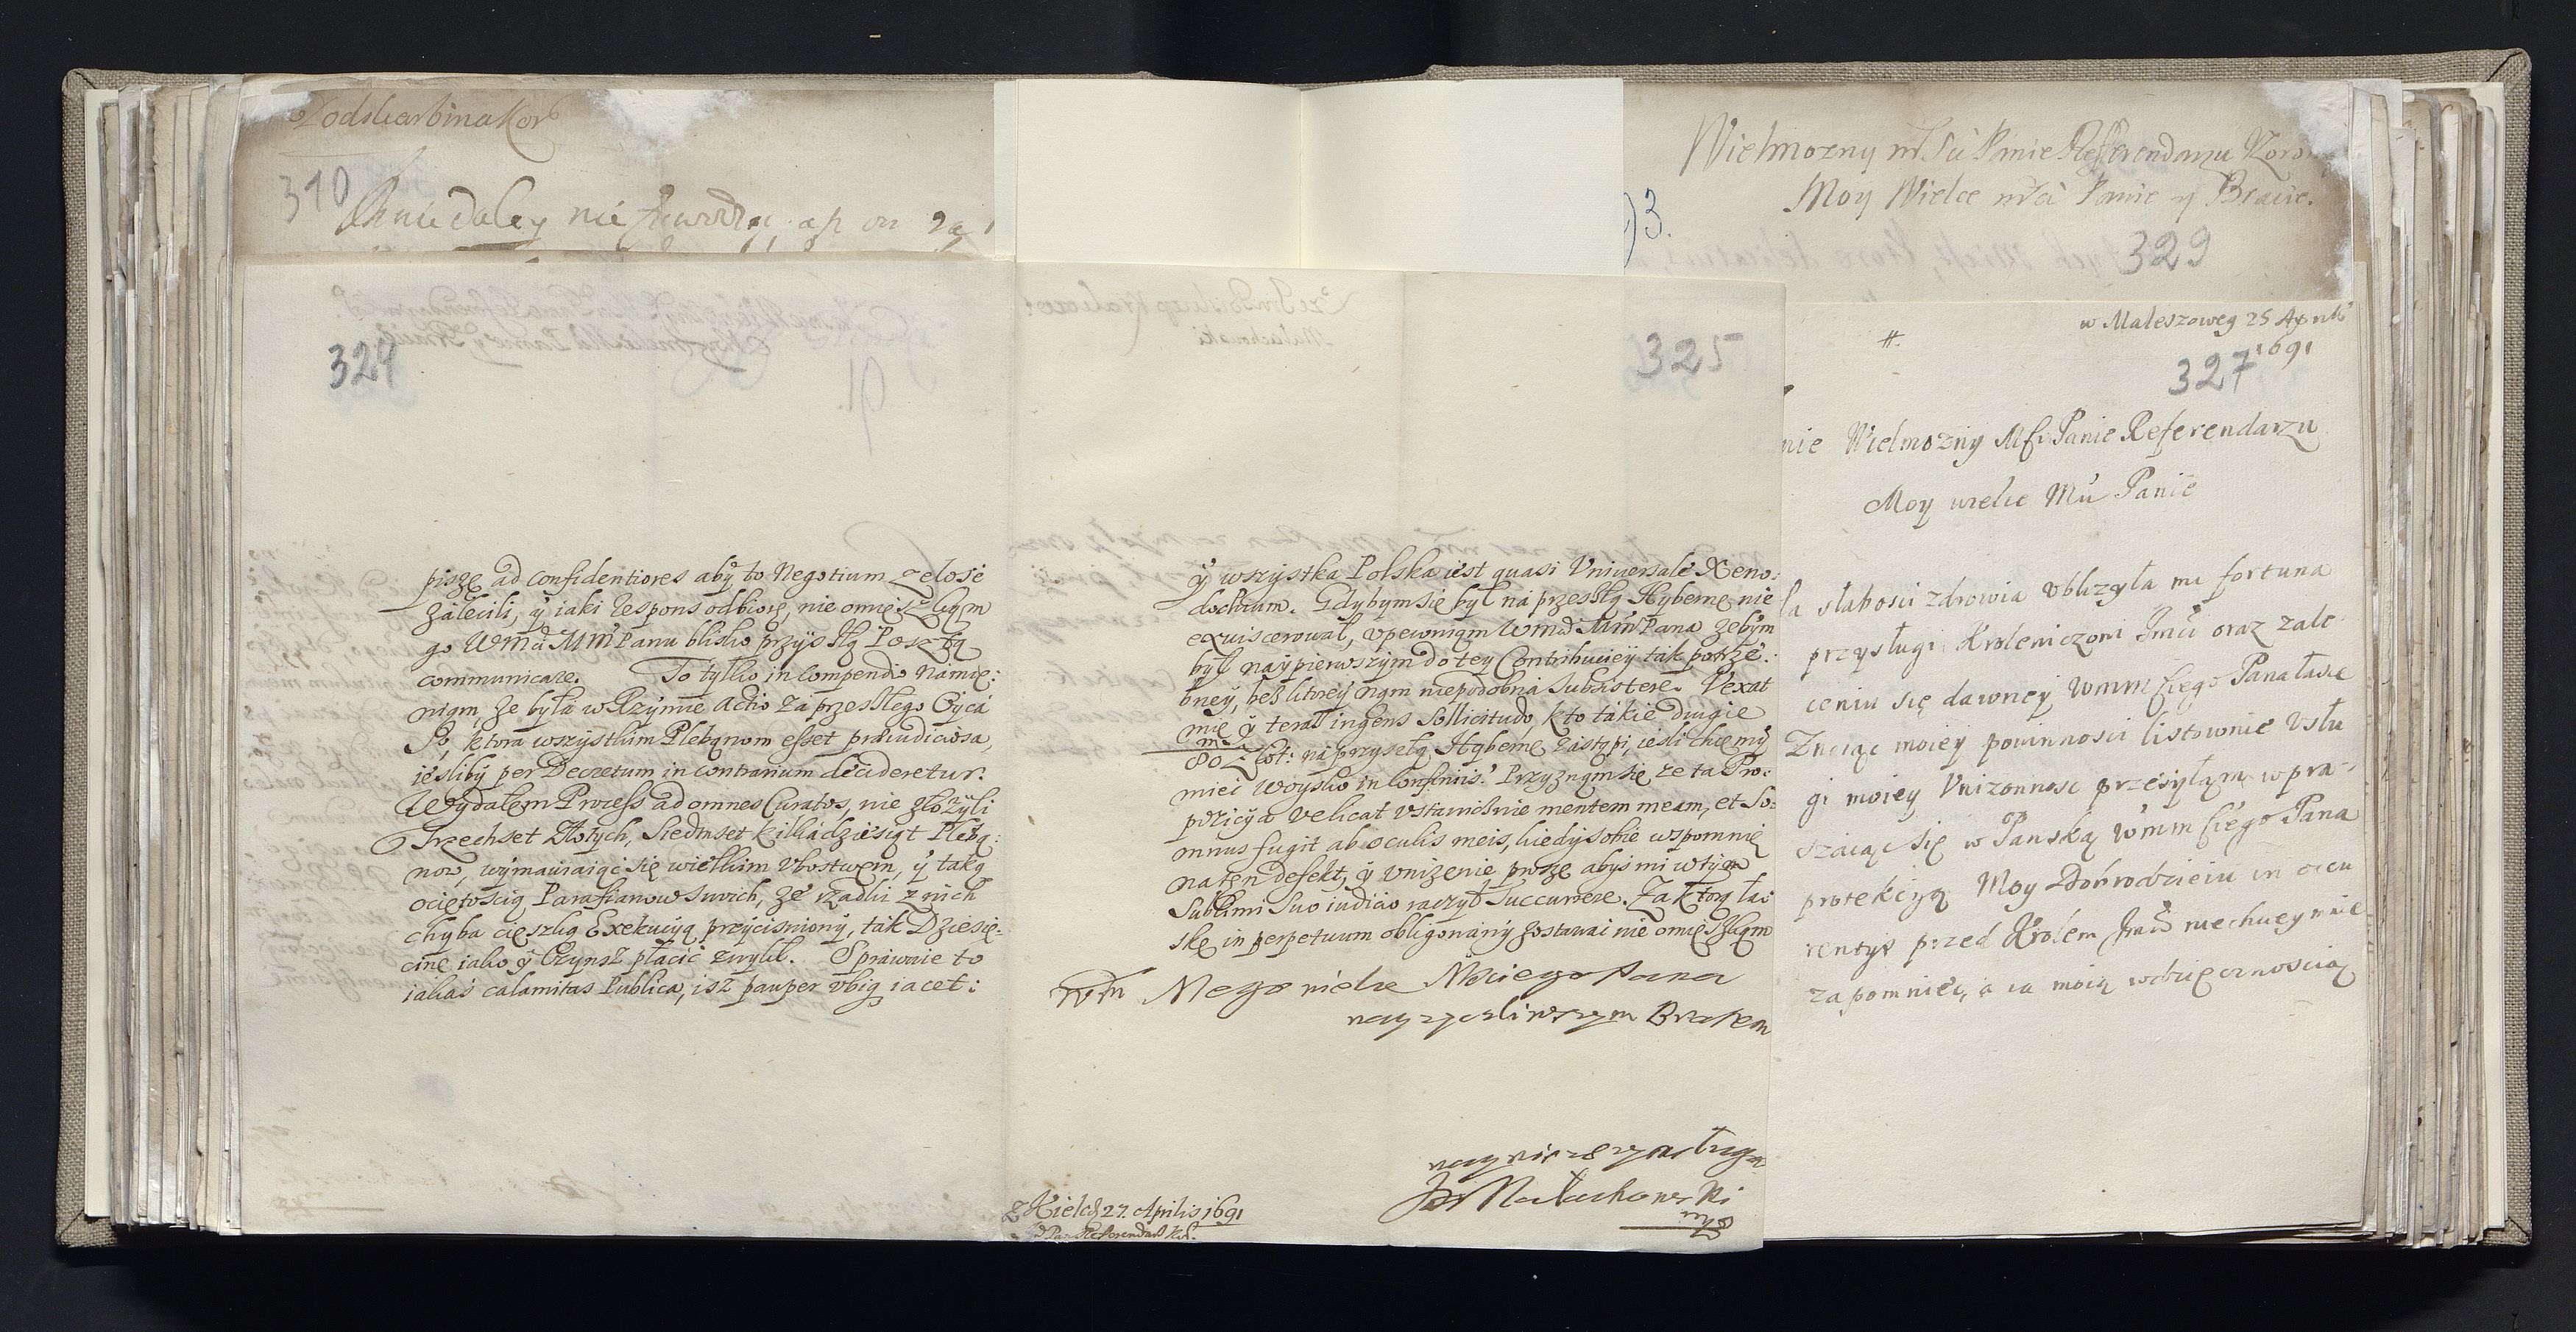 Podskarbina Kor
310
nie daley nie
324
piszę ad confidentiores aby to Negotium zelosè
zálecili, ÿ iaki respons odbiorę, nie omięszkąm
go Wmċ MM Panu blisko przyszłą Posztą
communicare. To tylko in compendio námie:
nigm, że była w Rzymie Actio zá przeszłego Oycá
So, ktora wszystkim Plebąnom esset praeiudiciosa,
iesliby per Decretum in contrarium decideretur.
Wydałem Process ad omnes Curatos, nie złożyli
Trzechset Złotych, Siedmset kilkádziesiąt Plebą:
now, wymawiaiąc się wielkim Vbostwem, ÿ taką
ociętoscią Parafianow swoich, że rzadki z nich
chyba cięszką Exekucyą przycisniony, ták Dziesię-
cinę iako ÿ Czynsz płacić zwykł. Spráwnie to
iakaś calamitas Publica, isz pauper vbiq iacet:
325
ÿ wszystka Polska iest quasi Vniversale Xeno:
dochium. Gdybym się był ná przeszłą Hybernę nie
exviscerował, vpewnigm Wmċ MM Pana, żebym
był naypierwszym do tey Contribucieÿ ták potrze:
bney, bez ktorey nąm niepodobna subsistere. Vexat
mię ÿ teraz ingens sollicitudo, kto tákie drugie
80 złot: ná przyszłą Hybernę zástąpi, iesli chcemy
mieć Woysko in confiniis? Przyznąm się że ta Pro:
pozicya vellicat vstawicznie mentem meam, et So:
mnus fugit ab oculis meis, kiedy sobie wspomnię
na ten defekt, ÿ vniżenie proszę abyś mi w tym
Sublimi Suo iudicio raczył Succurrere. Za ktorą łas
skę in perpetuum obligowány zostawać nie omięszkąm
Wm Mego wielce Mściwego Pana
nayzyczliwszym Bratem
nayniższym sługą
Jan Małachowski
z Kielc 27. Aprilis 1691
Pan Referendarz Kor.
Wielmozny mści Panie Refferendarzu Koronny
Moy Wielce mści Panie y Bracie.
93.
329
w Maleszowey 25 Aprilis
#.
1691
327
nie Wielmozny Mści Panie Referendarzu
Moy wielce Mści Panie
la słabosci zdrowia vblizyła mi fortuna
przysługi Krolewiczowi Jmci oraz zale-
ceniu się dawney wmm sċego Pana łasce
moiey powinnosci listownie vsłu
gi moiey Vnizonnosc przesyłąm wpra-
szaiąc się w Panską wmm sċego Pana
protekcyą Moy Dobrodzieiu in occu
rentys przed Krolem Jmċ niechciey mnie
zapomniec, a ia moią wdzięcznoscią